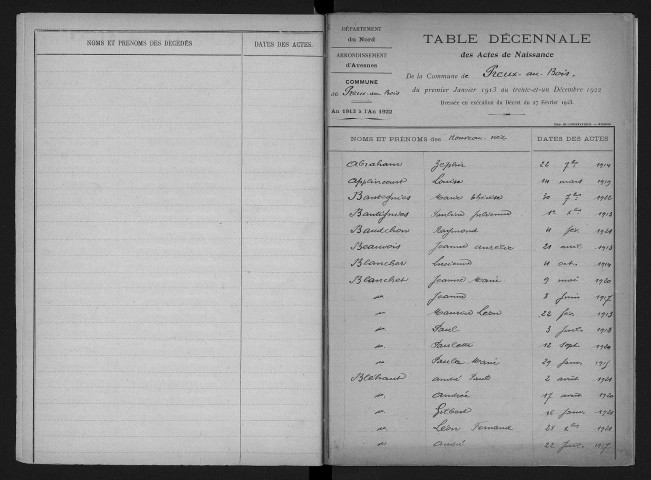 NOMS ET PRÉNOMS DES DÉCÉDÉS DATES DES ACTES.
DÉPARTEMENT
du Nord
ARRONDISSEMENT
d'Avesnes
COMMUNE
de Preux-au-Bois
An 1913 à l'An 1922
TABLE DÉCENNALE
des Actes de Naissance
De la Commune de Preux-au-Bois.
du premier Janvier 1913 au trente-et-un Décembre 1922
Dressée en exécution du Décret du
NOMS ET PRÉNOMS des Nouveau-nés DATES DES ACTES
Abraham Zéphir 22 7bre 1914
Applincourt Louise 14 mars 1919
Marie Thérèse 30 7bre 1922
1er Xbre 1913
Baudchon Raymond 11 fév.
Beauvois Jeanne 21 avril 1913
Blancher Lucienne 11 oct. 1914
Blanchet Jeanne Marie 9 mai 1920
" Jeanne 8 Juin 1917
" Maurice Léon 22 fév. 1913
" Paul 3 1918
" Paulette 12 Sept. 1920
" Marie 29 Janv.
André 2 août 1921
" Andrée 17 août 1920
" Gilbert 16 Janv. 1921
" Léon Fernand 28 Xbre 1921
" André 22 1917